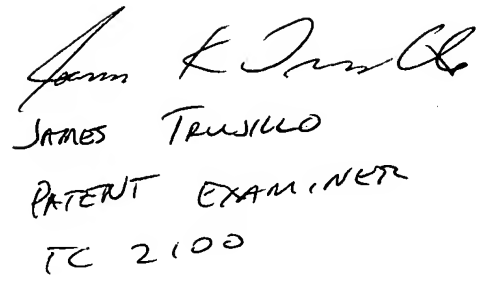 James K Trujillo
JAMES TRUJILLO
PATENT EXAMINER
TC 2100